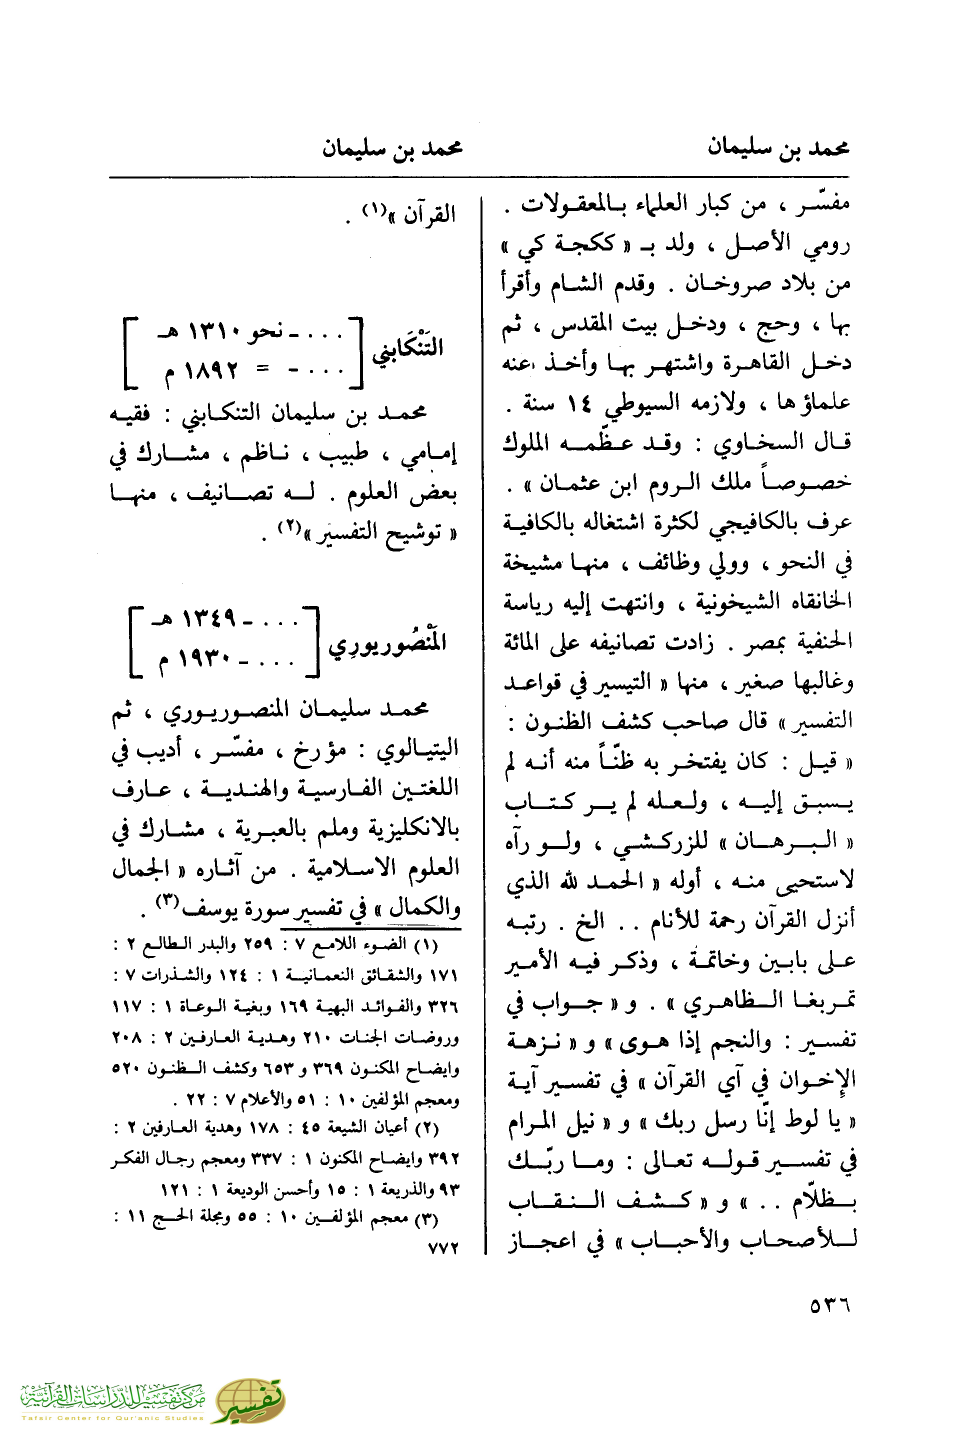 محمد بن سليمان
محمد بن سليمان
مفسّر ، من كبار العلماء بالمعقولات .
رومي الأصل ، ولد بـ « ككجة كي »
من بلاد صروخان . وقدم الشام وأقرأ
بها ، وحج ، ودخل بيت المقدس ، ثم
دخل القاهرة واشتهر بها وأخذ عنه
علماؤها ، ولازمه السيوطي ١٤ سنة .
قال السخاوي : وقد عظّمه الملوك
خصوصاً ملك الروم ابن عثمان » .
عرف بالكافيجي لكثرة اشتغاله بالكافية
في النحو ، وولي وظائف ، منها مشيخة
الخانقاه الشيخونية ، وانتهت إليه رياسة
الحنفية بمصر . زادت تصانيفه على المائة
وغالبها صغير ، منها « التيسير في قواعد
التفسير » قال صاحب كشف الظنون :
« قيل : كان يفتخر به ظنّاً منه أنه لم
يسبق إليه ، ولعله لم ير كتاب
« البرهان » للزركشي ، ولو رآه
لاستحيى منه ، أوله « الحمد لله الذي
أنزل القرآن رحمة للأنام .. الخ . رتبه
على بابين وخاتمة ، وذكر فيه الأمير
تمربغا الظاهري » . و « جواب في
تفسير : والنجم إذا هوى » و « نزهة
الإخوان في آي القرآن » في تفسير آية
« يا لوط إنّا رسل ربك » و « نيل المرام
في تفسير قوله تعالى : وما ربّك
بظلّام .. » و « كشف النقاب
للأصحاب والأحباب » في اعجاز
القرآن »(١) .
التَنْكَابني [ .... - نحو ١٣١٠ هـ
.... - = ١٨٩٢ م ]
محمد بن سليمان التنكابني : فقيه
إمامي ، طبيب ، ناظم ، مشارك في
بعض العلوم . له تصانيف ، منها
« توشيح التفسير »(٢) .
المَنْصُوريوري [ .... - ١٣٤٩ هـ
.... - ١٩٣٠ م ]
محمد سليمان المنصوريوري ، ثم
اليتيالوي : مؤرخ ، مفسّر ، أديب في
اللغتين الفارسية والهندية ، عارف
بالانكليزية وملم بالعبرية ، مشارك في
العلوم الاسلامية . من آثاره « الجمال
والكمال » في تفسير سورة يوسف(٣) .
(١) الضوء اللامع ٧ : ٢٥٩ والبدر الطالع ٢ :
١٧١ والشقائق النعمانية ١ : ١٢٤ والشذرات ٧ :
٣٢٦ والفوائد البهية ١٦٩ وبغية الوعاة ١ : ١١٧
وروضات الجنات ٢١٠ وهدية العارفين ٢ : ٢٠٨
وايضاح المكنون ٣٦٩ و ٦٥٣ وكشف الظنون ٥٢٠
ومعجم المؤلفين ١٠ : ٥١ والأعلام ٧ : ٢٢ .
(٢) أعيان الشيعة ٤٥ : ١٧٨ وهدية العارفين ٢ :
٣٩٢ وايضاح المكنون ١ : ٣٣٧ ومعجم رجال الفكر
٩٣ والذريعة ١ : ١٥ وأحسن الوديعة ١ : ١٢١
(٣) معجم المؤلفين ١٠ : ٥٥ ومجلة الحج ١١ :
٧٧٢
٥٣٦
مركز تفسير للدراسات القرآنية
Tafsir Center for Qur'anic Studies
تفسير